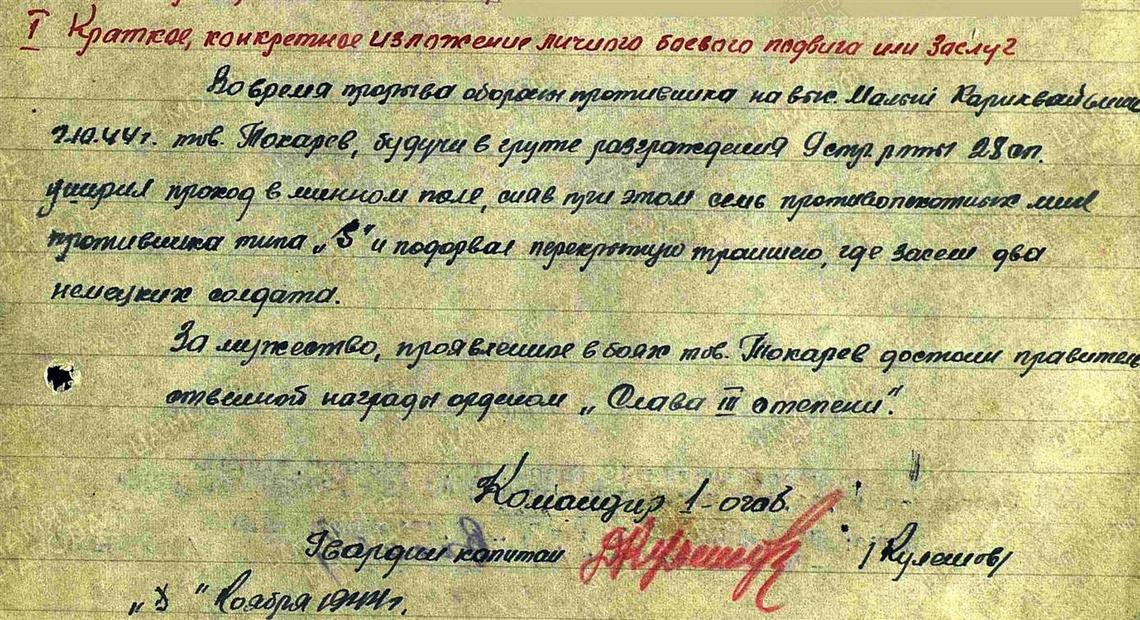 I Краткое, конкретное изложение личного боевого подвига или заслуг
Во время прорыва обороны противника на выс. Малый Кариквайвиш
7.10.44г. тов. Токарев, будучи в группе разграждения 9 стр. роты 28 сп.
уширил проход в минном поле, сняв при этом семь противопехотных мин
противника типа „S" и подорвал перекрытую траншею, где засели два
немецких солдата.
За мужество, проявленное в боях тов. Токарев достоин правитель
ственной награды орденом „Слава III степени".
Командир 1-
Гвардии капитан /Кулешов/
" Ноября 1944г.